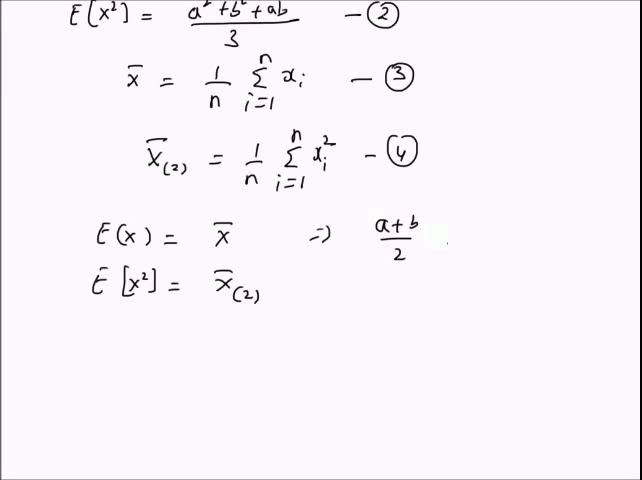 E[x²] = a² + b² + ab / 3 — ②
x̄ = 1/n Σ_{i=1}^{n} x_i — ③
x̄₍₂₎ = 1/n Σ_{i=1}^{n} x_i² — ④
E(x) = x̄ ⇒ a+b / 2
E[x²] = x̄₍₂₎